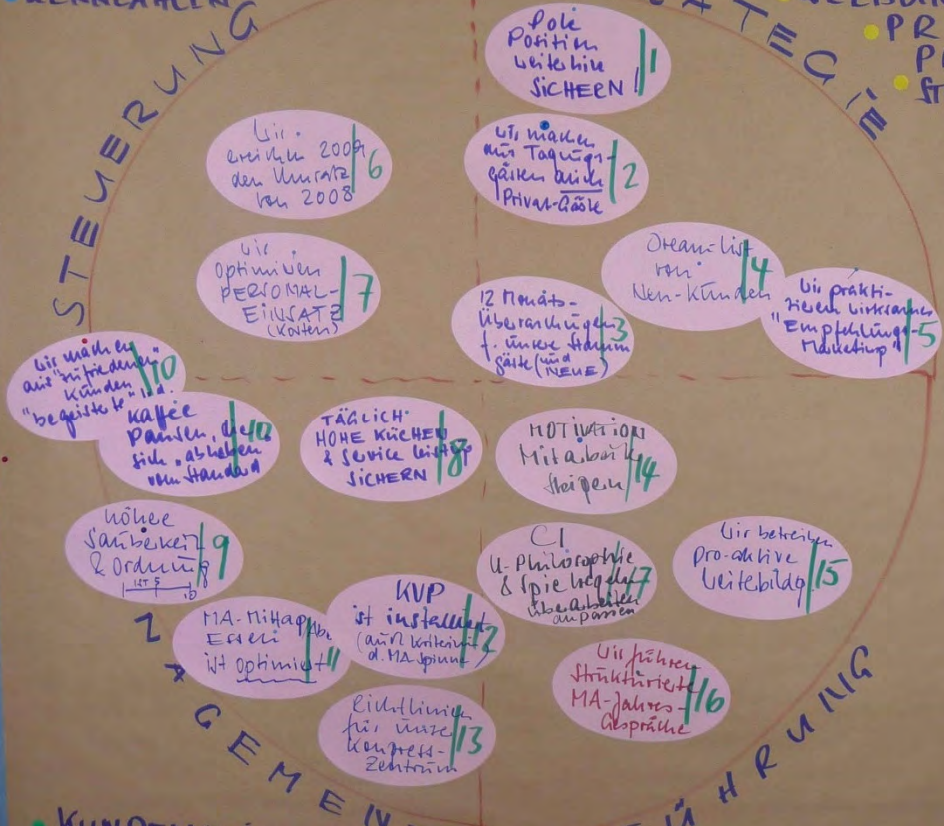 KENNZAHLEN
STEUERUNG
ATEGIE
PR
ST
Pole
Position
weiterhin
SICHERN !
1
Wir machen
aus Tagungs-
gästen auch
Privat-Gäste
2
Wir
erreichen 2009
den Umsatz
von 2008
6
Wir
optimieren
PERSONAL-
EINSATZ
(Kosten)
7
Dream-List
von
Neu-Kunden
4
12 Monats-
Überraschungen
f. unsere Stamm
gäste (und
NEUE)
3
Wir prakti-
zieren wirksames
"Empfehlungs-
Marketing"
5
Wir machen
aus "zufriedenen"
Kunden
"begeisterte"
10
Kaffee
pausen, die
sich abheben
vom Standard
10
TÄGLICH
HOHE KÜCHEN
& Service leistg
SICHERN
8
MOTIVATION
Mitarbeiter
steigern
14
höhere
Sauberkeit
& Ordnung
IST 5
9
CI
U-Philosophie
& Spielregeln
überarbeiten
anpassen
17
Wir betreiben
pro-aktive
Weiterbildg
15
MA-Mittag/Ab.
Essen
ist optimiert
11
KVP
ist installiert
(auch Kriterium
d. MA Spinne)
12
Wir führen
strukturierte
MA-Jahres-
Gespräche
16
Richtlinien
für unser
Kongress-
Zentrum
13
NAGEMEN
ÜHRUNG